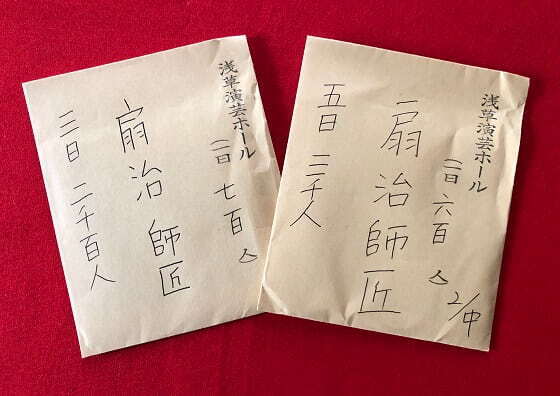 浅草演芸ホール
一日 七百
扇治師匠
三日 二千百人
浅草演芸ホール
一日 六百
2/中
扇治師匠
五日 三千人